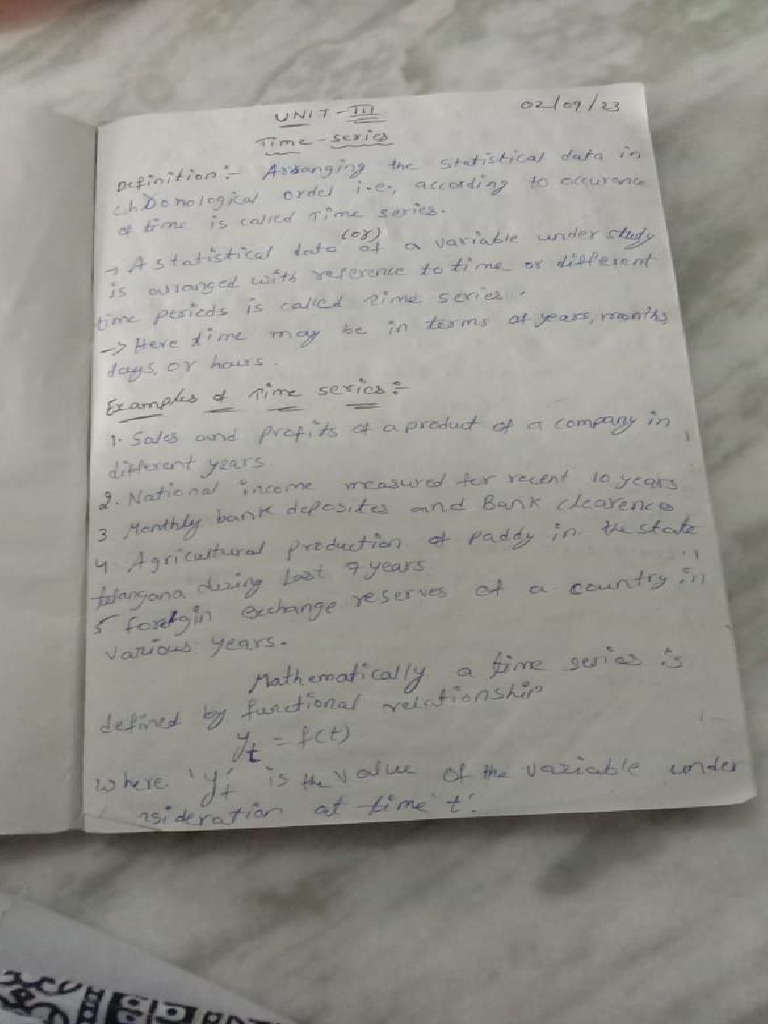 UNIT-III
02/09/23
Time-series
Definition:- Arranging the statistical data in
chronological order i.e., according to occurance
of time is called Time series.
(or)
→ A statistical data of a variable under study
is arranged with reference to time or different
time periods is called Time series.
→ Here time may be in terms of years, months,
days, or hours.
Examples of Time series:-
1. Sales and profits of a product of a company in
different years
2. National income measured for recent 10 years
3. Monthly bank deposites and Bank clearence
4. Agricultural production of paddy in the state
telangana during last 7 years
5. foreign exchange reserves of a country in
various years.
Mathematically a time series is
defined by functional relationship
yt = f(t)
where 'yt' is the value of the variable under
nsideration at time 't'.